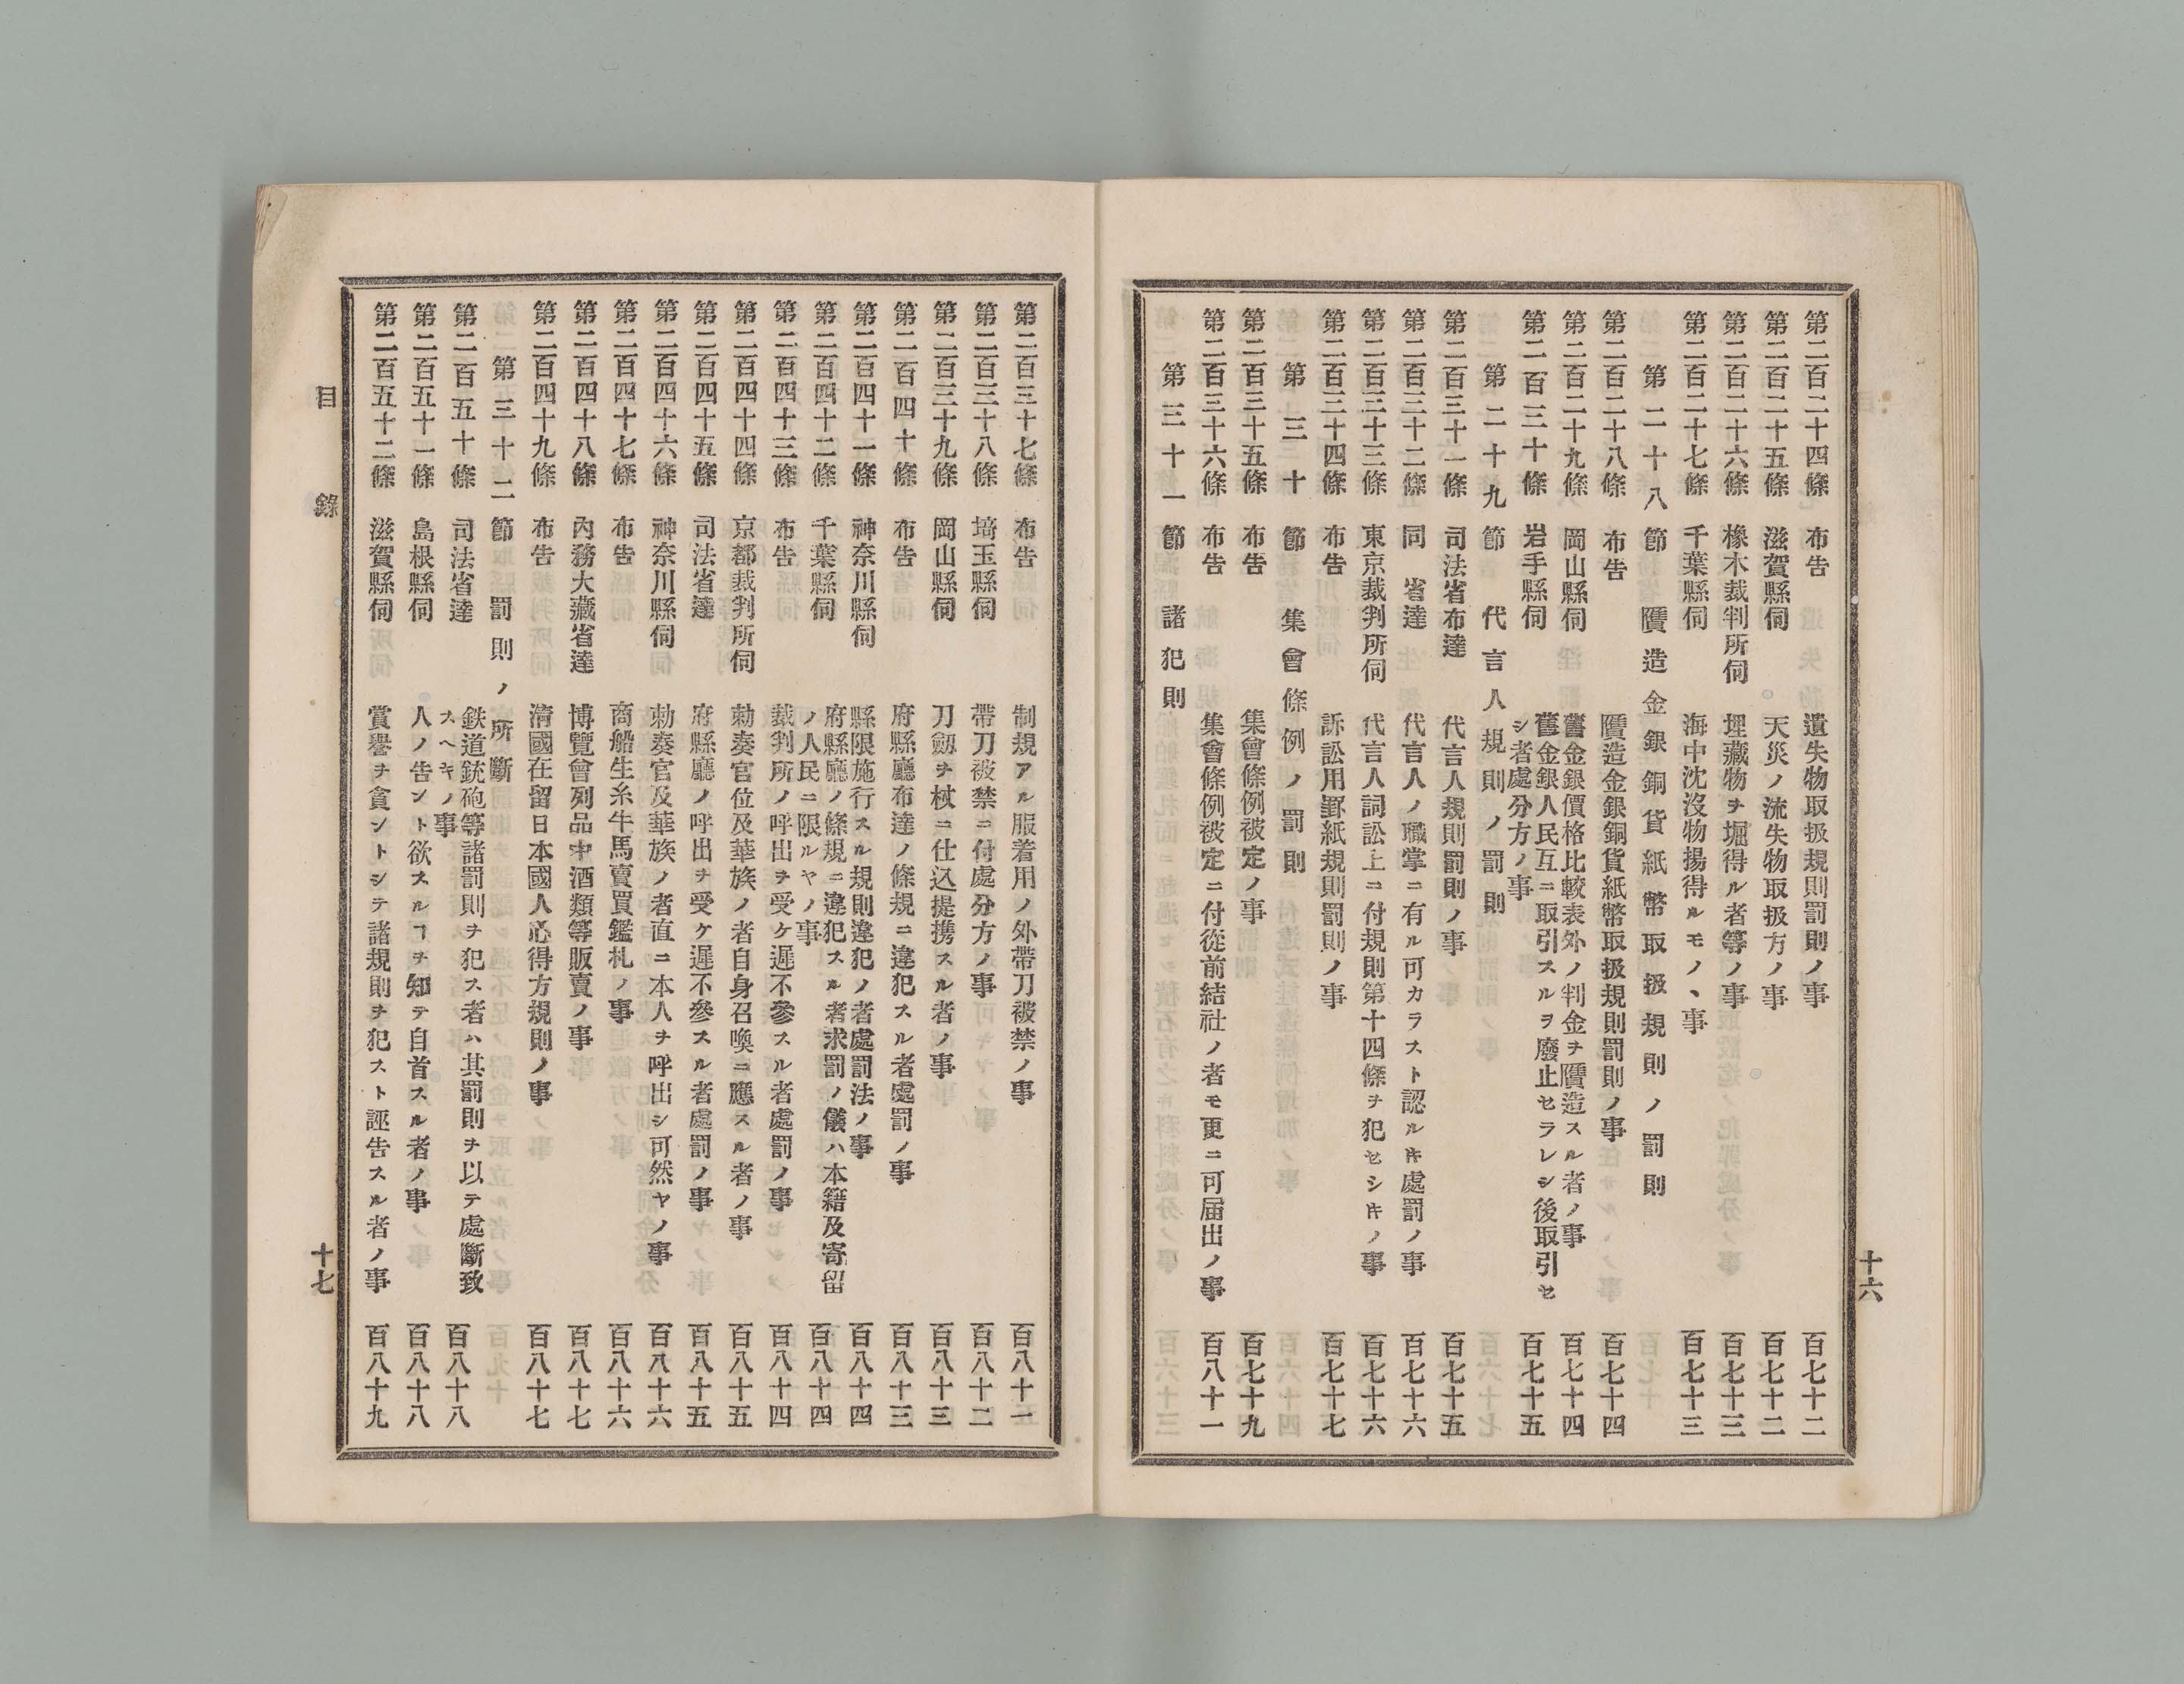 第二百二十四條 布告 遺失物取扱規則罰則ノ事 百七十二
第二百二十五條 滋賀縣伺 天災ノ流失物取扱方ノ事 百七十二
第二百二十六條 橡木裁判所伺 埋藏物ヲ堀得ル者等ノ事 百七十三
第二百二十七條 千葉縣伺 海中沈沒物揚得ルモノヽ事 百七十三
第二十八節 贋造金銀銅貨紙幣取扱規則ノ罰則
第二百二十八條 布告 贋造金銀銅貨紙幣取扱規則罰則ノ事 百七十四
第二百二十九條 岡山縣伺 舊金銀價格比較表外ノ判金ヲ贋造スル者ノ事 百七十四
第二百三十條 岩手縣伺 舊金銀人民互ニ取引スルヲ廢止セラレシ後取引セ 百七十五
シ者處分方ノ事
第二十九節 代言人規則ノ罰則
第二百三十一條 司法省布達 代言人規則罰則ノ事 百七十五
第二百三十二條 同省達 代言人ノ職掌ニ有ル可カラスト認ルキ處罰ノ事 百七十六
第二百三十三條 東京裁判所伺 代言人詞訟上ニ付規則第十四條ヲ犯セシキノ事 百七十六
第二百三十四條 布告 訴訟用罫紙規則罰則ノ事 百七十七
第三十節 集會條例ノ罰則
第二百三十五條 布告 集會條例被定ノ事 百七十九
第二百三十六條 布告 集會條例被定ニ付從前結社ノ者モ更ニ可届出ノ事 百八十一
第三十一節 諸犯則
十六
第二百三十七條 布告 制規アル服着用ノ外帶刀被禁ノ事 百八十一
第二百三十八條 埼玉縣伺 帶刀被禁ニ付處分方ノ事 百八十二
第二百三十九條 岡山縣伺 刀劔ヲ杖ニ仕込提携スル者ノ事 百八十三
第二百四十條 布告 府縣廳布達ノ條規ニ違犯スル者處罰ノ事 百八十三
第二百四十一條 神奈川縣伺 縣限施行スル規則違犯ノ者處罰法ノ事 百八十四
第二百四十二條 千葉縣伺 府縣廳ノ條規ニ違犯スル者求罰ノ儀ハ本籍及寄留 百八十四
ノ人民ニ限ルヤノ事
第二百四十三條 布告 裁判所ノ呼出ヲ受ケ遲不參スル者處罰ノ事 百八十四
第二百四十四條 京都裁判所伺 勅奏官位及華族ノ者自身召喚ニ應スル者ノ事 百八十五
第二百四十五條 司法省達 府縣廳ノ呼出ヲ受ケ遲不參スル者處罰ノ事 百八十五
第二百四十六條 神奈川縣伺 勅奏官及華族ノ者直ニ本人ヲ呼出シ可然ヤノ事 百八十六
第二百四十七條 布告 商船生糸牛馬賣買鑑札ノ事 百八十六
第二百四十八條 內務大藏省達 博覽會列品中酒類等販賣ノ事 百八十七
第二百四十九條 布告 淸國在留日本國人必得方規則ノ事 百八十七
第三十二節 罰則ノ所斷
第二百五十條 司法省達 鉄道銃砲等諸罰則ヲ犯ス者ハ其罰則ヲ以テ處斷致 百八十八
スヘキノ事
第二百五十一條 島根縣伺 人ノ告ント欲スルヿヲ知テ自首スル者ノ事 百八十八
第二百五十二條 滋賀縣伺 賞譽ヲ貪ントシテ諸規則ヲ犯スト誣告スル者ノ事 百八十九
目錄 十七